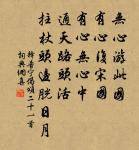 無心遊此國
有心復宋國
有心無心中
通天路頭活
拄杖頭邊挑日月
釋普寧偈頌二十一首